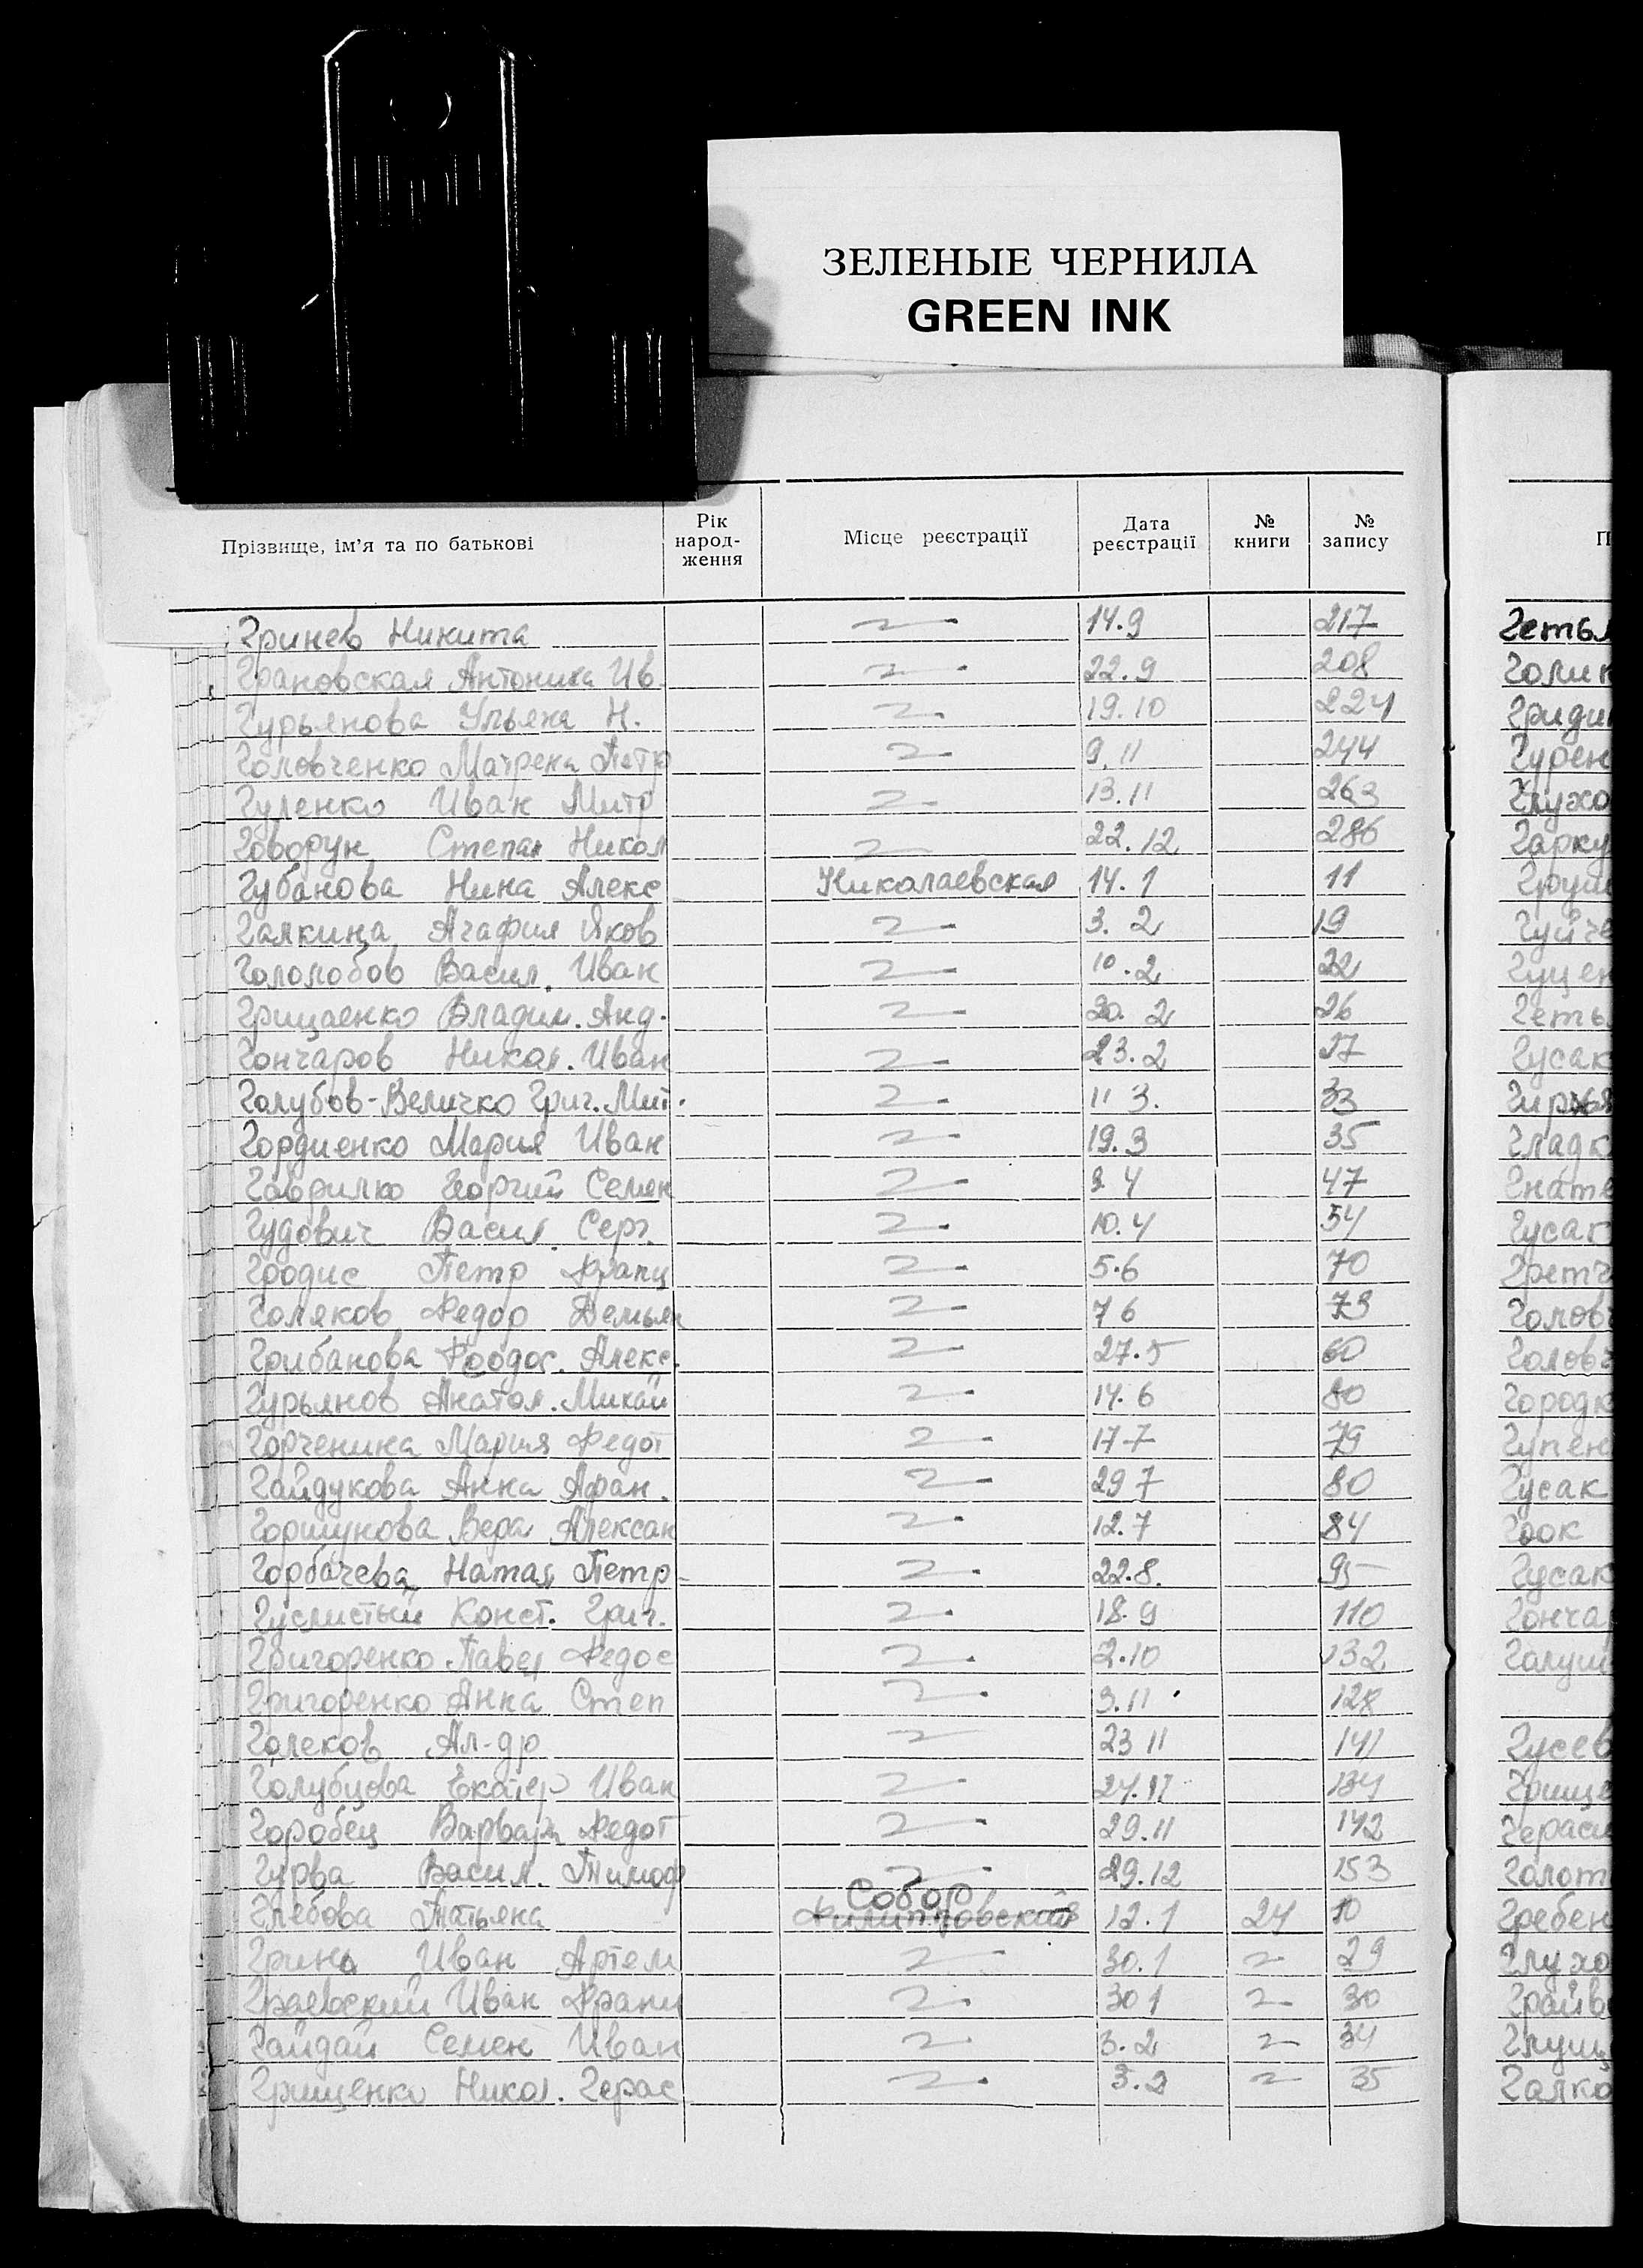 ЗЕЛЕНЫЕ ЧЕРНИЛА
GREEN INK
Прізвище, ім'я та по батькові Рік народ-ження Місце реєстрації Дата реєстрації № книги № запису
Гринев Никита 〃 14.9 217
Грановская Антонина Ив. 〃 22.9 208
Гурьянова Ульяна Н. 〃 19.10 224
Головченко Матрена Петр 〃 9.11 244
Гуленко Иван Митр 〃 13.11 263
Говорун Степан Никол 〃 22.12 286
Губанова Нина Алекс Николаевская 14.1 11
Галкина Агафия Яков 〃 3.2 19
Гололобов Васил. Иван 〃 10.2 22
Грицаенко Владим. Анд. 〃 20.2 26
Гончаров Никол. Иван 〃 23.2 27
Голубов-Величко Григ. Мит. 〃 11 3. 33
Гордиенко Мария Иван 〃 19.3 35
Гаврилко Георгий Семен 〃 3 4 47
Гудович Васил. Серг. 〃 10.4 54
Гродис Петр Франц 〃 5.6 70
Голяков Федор Демьян 〃 7 6 73
Грибанова Феодос. Алекс. 〃 27.5 60
Гурьянов Анатол. Михай 〃 14.6 80
Горченина Мария Федот 〃 17 7 79
Гайдукова Анна Афан. 〃 29 7 80
Горшунова Вера Алексан 〃 12.7 84
Горбачева Натал Петр 〃 22.8. 95
Гуслистый Конст. Григ. 〃 18.9 110
Григоренко Павел Федос 〃 2.10 132
Григоренко Анна Степ 〃 3.11 128
Голеков Ал-др 〃 23 11 141
Голубцова Екатер Иван 〃 24.11 134
Горобец Варвара Федот 〃 29.11 142
Гурва Васил. Тимоф 〃 29.12 153
Собор
Глебова Татьяна Филипповский 12.1 24 10
Гринь Иван Артем 〃 30.1 〃 29
Граевский Иван Франц 〃 30 1 〃 30
Гайдай Семен Иван 〃 3.2 〃 34
Грищенко Никол. Герас 〃 3.2 〃 35